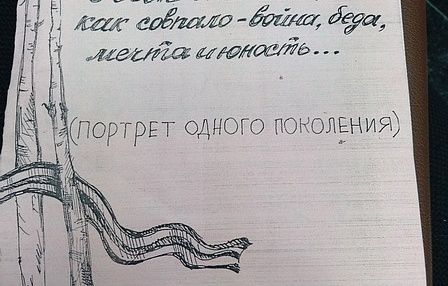 как совпало - война, беда,
мечта и юность...
(ПОРТРЕТ ОДНОГО ПОКОЛЕНИЯ)